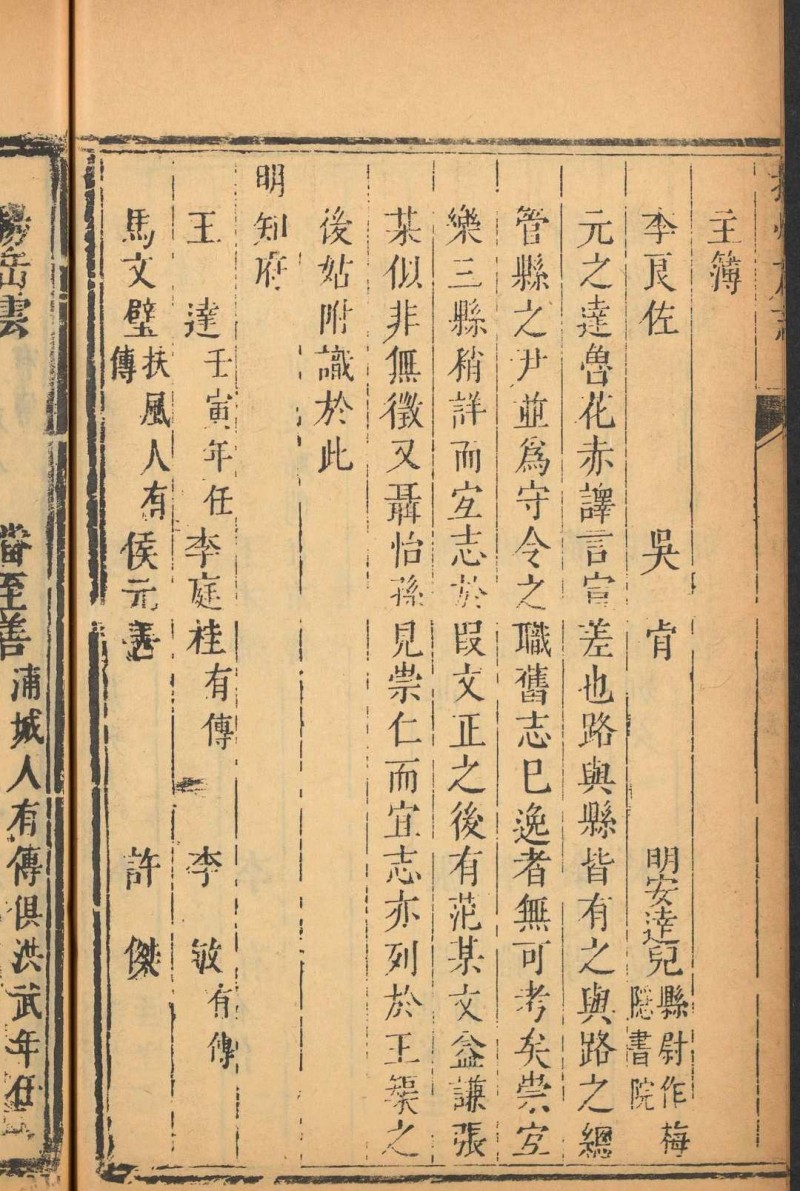 主簿
李良佐 吳 肯 明安達兒縣尉作梅隱書院
元之達魯花赤譯言宣差也路與縣皆有之與路之總
管縣之尹並爲守令之職舊志巳逸者無可考矣崇宜
樂三縣稍詳而宜志於段文正之後有范某文益謙張
某似非無徵又聶怡孫見崇仁而宜志亦列於王槼之
後姑附識於此
明知府
王 達壬寅年任 李庭桂有傳 李 敏有傳
馬文璧扶風人有傳 侯元善 許 傑
楊岳雲 潘至善浦城人有傳俱洪武年任